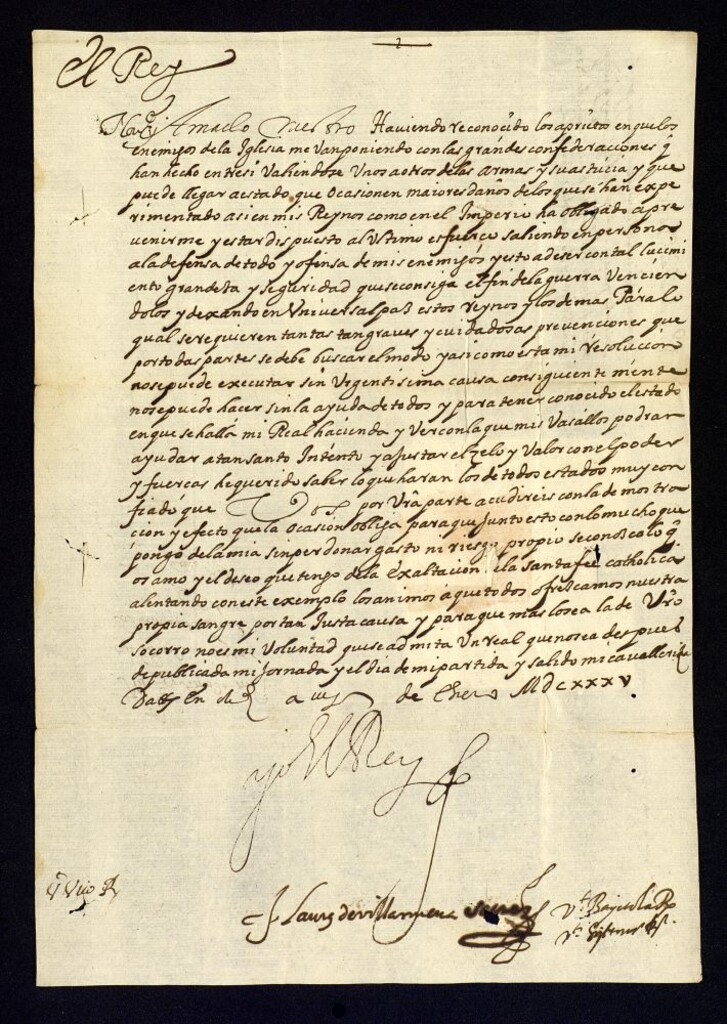 El Rey
Amado Nuestro Haviendo reconocido los aprietos en que los
enemigos de la Iglesia me van poniendo con las grandes confederaciones q
han hecho entre si Valiendose Unos a otros de las armas y su astucia y que
puede llegar a estado que Ocasionen maiores daños de los que se han expe
rimentado asi en mis Reynos como en el Imperio ha obligado a pre
venirme y estar dispuesto al Ultimo esfuerço saliendo en persona
a la defensa de todo y ofensa de mis enemigos y esto a de ser con tal lucimi
ento grandeza y seguridad que se consiga el fin de la guerra Vencien
dolos y dexando en Universal paz estos reynos y los demas Para lo
qual se requieren tantas tan graves y cuidadosas prevenciones que
por todas partes se debe buscar el modo y asi como esta mi Resolucion
no se puede executar sin Urgentisima causa consiguientemente
no se puede hacer sin la ayuda de todos y para tener conocido el estado
en que se halla mi Real hacienda y Ver con la que mis Vasallos podran
ayudar a tan santo Intento y ajustar el zelo y Valor con el poder
y fuercas he querido saber lo que haran los de todos estados muy con
fiado que Vos por Vra parte acudireis con la demostra
cion y efecto que la ocasion obliga para que junto esto con lo mucho que
pongo de la mia sin perdonar gasto ni riesgo propio se conosca lo q
os amo y el deseo que tengo de la Exaltacion la santa fee catholica
alentando con este exemplo los animos a que todos ofrescamos nuestra
propia sangre por tan Justa causa y para que mas lo sea la de Vro
socorro no es mi Voluntad que se admita Un real que no sea despues
de publicada mi jornada y el dia de mi partida y salido mi cavalleriza
Datt en a de Enero MDCXXXV
yo El Rey
de Villanueva